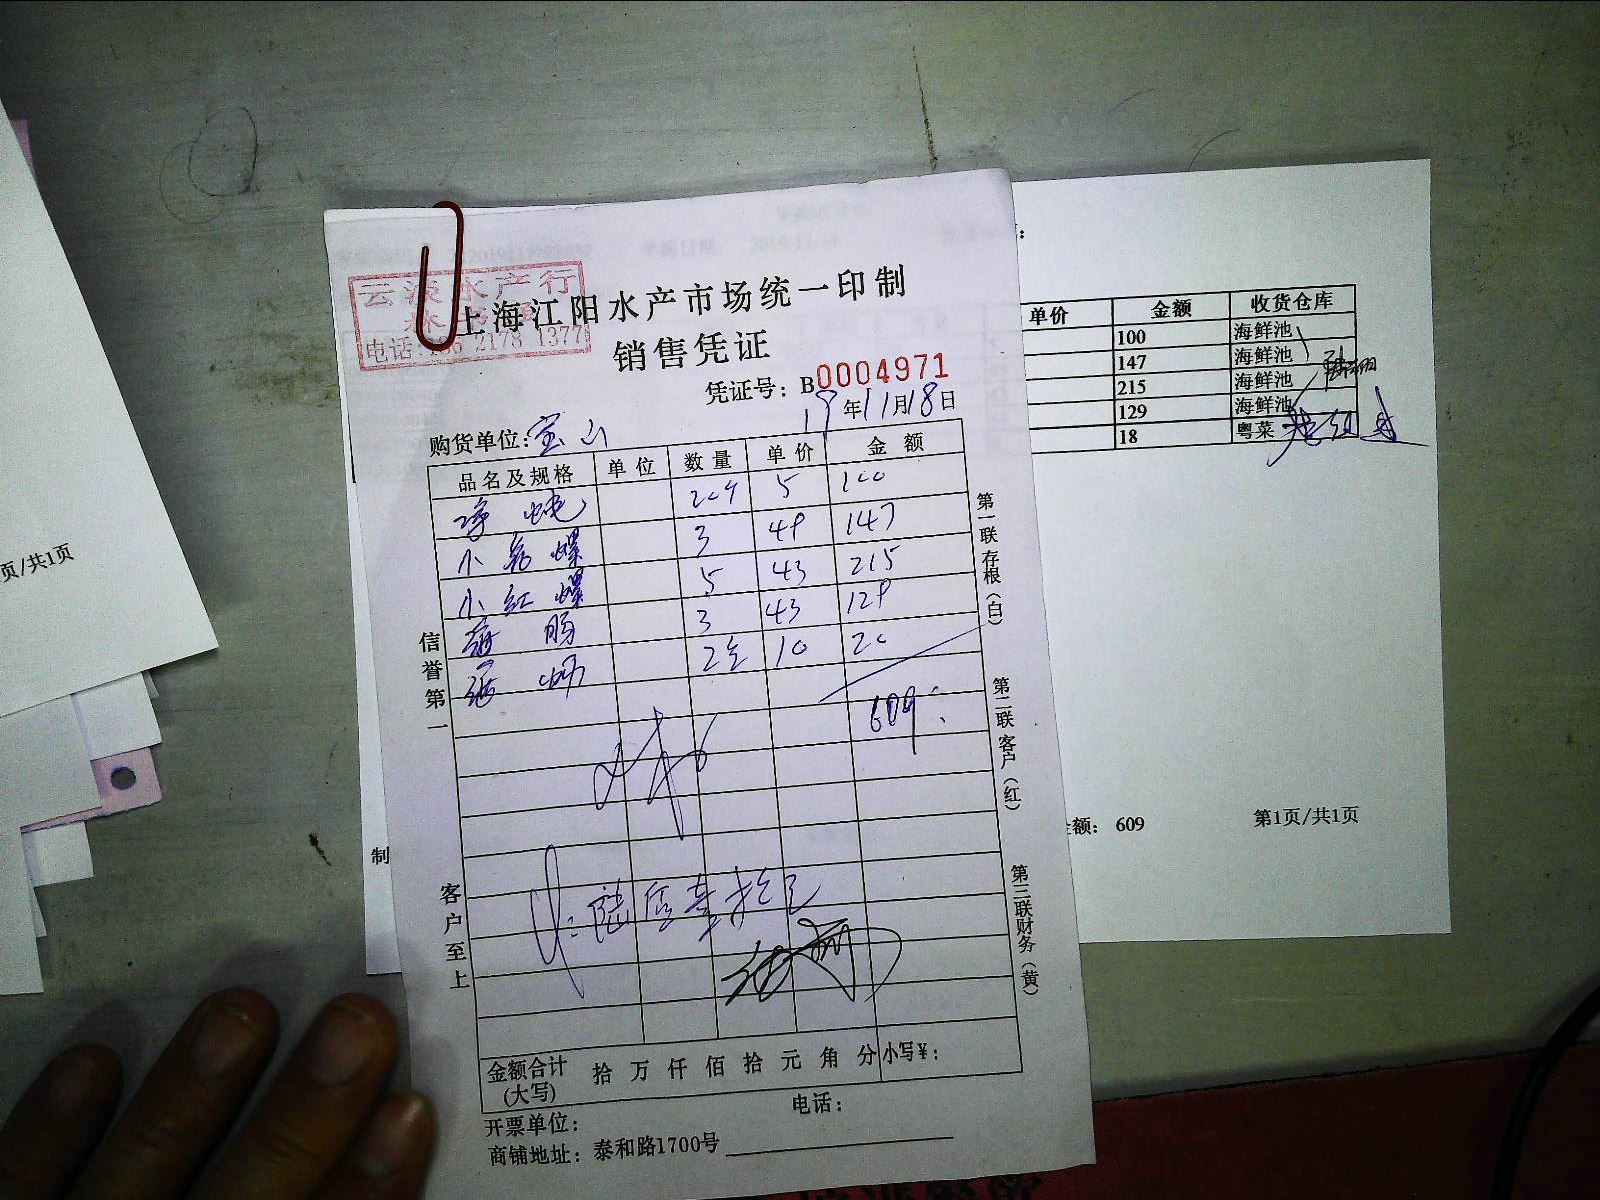 水产行
电话:
1377
上海江阳水产市场统一印制
销售凭证
凭证号: B0004971
19年11月18日
购货单位: 宝山
品名及规格 单位 数量 单价 金额
5 100
小 螺 3 49 147
小 红 螺 5 43 215
3 43 129
10 20
609
信誉第一
客户至上
第一联存根(白)
第二联客户(红)
第三联财务(黄)
金额合计(大写) 拾 万 仟 佰 拾 元 角 分 小写¥:
开票单位: 电话:
商铺地址: 泰和路1700号
单价 金额 收货仓库
100 海鲜池
147 海鲜池
215 海鲜池
129 海鲜池
18 粤菜
额: 609 第1页/共1页
制
页/共1页